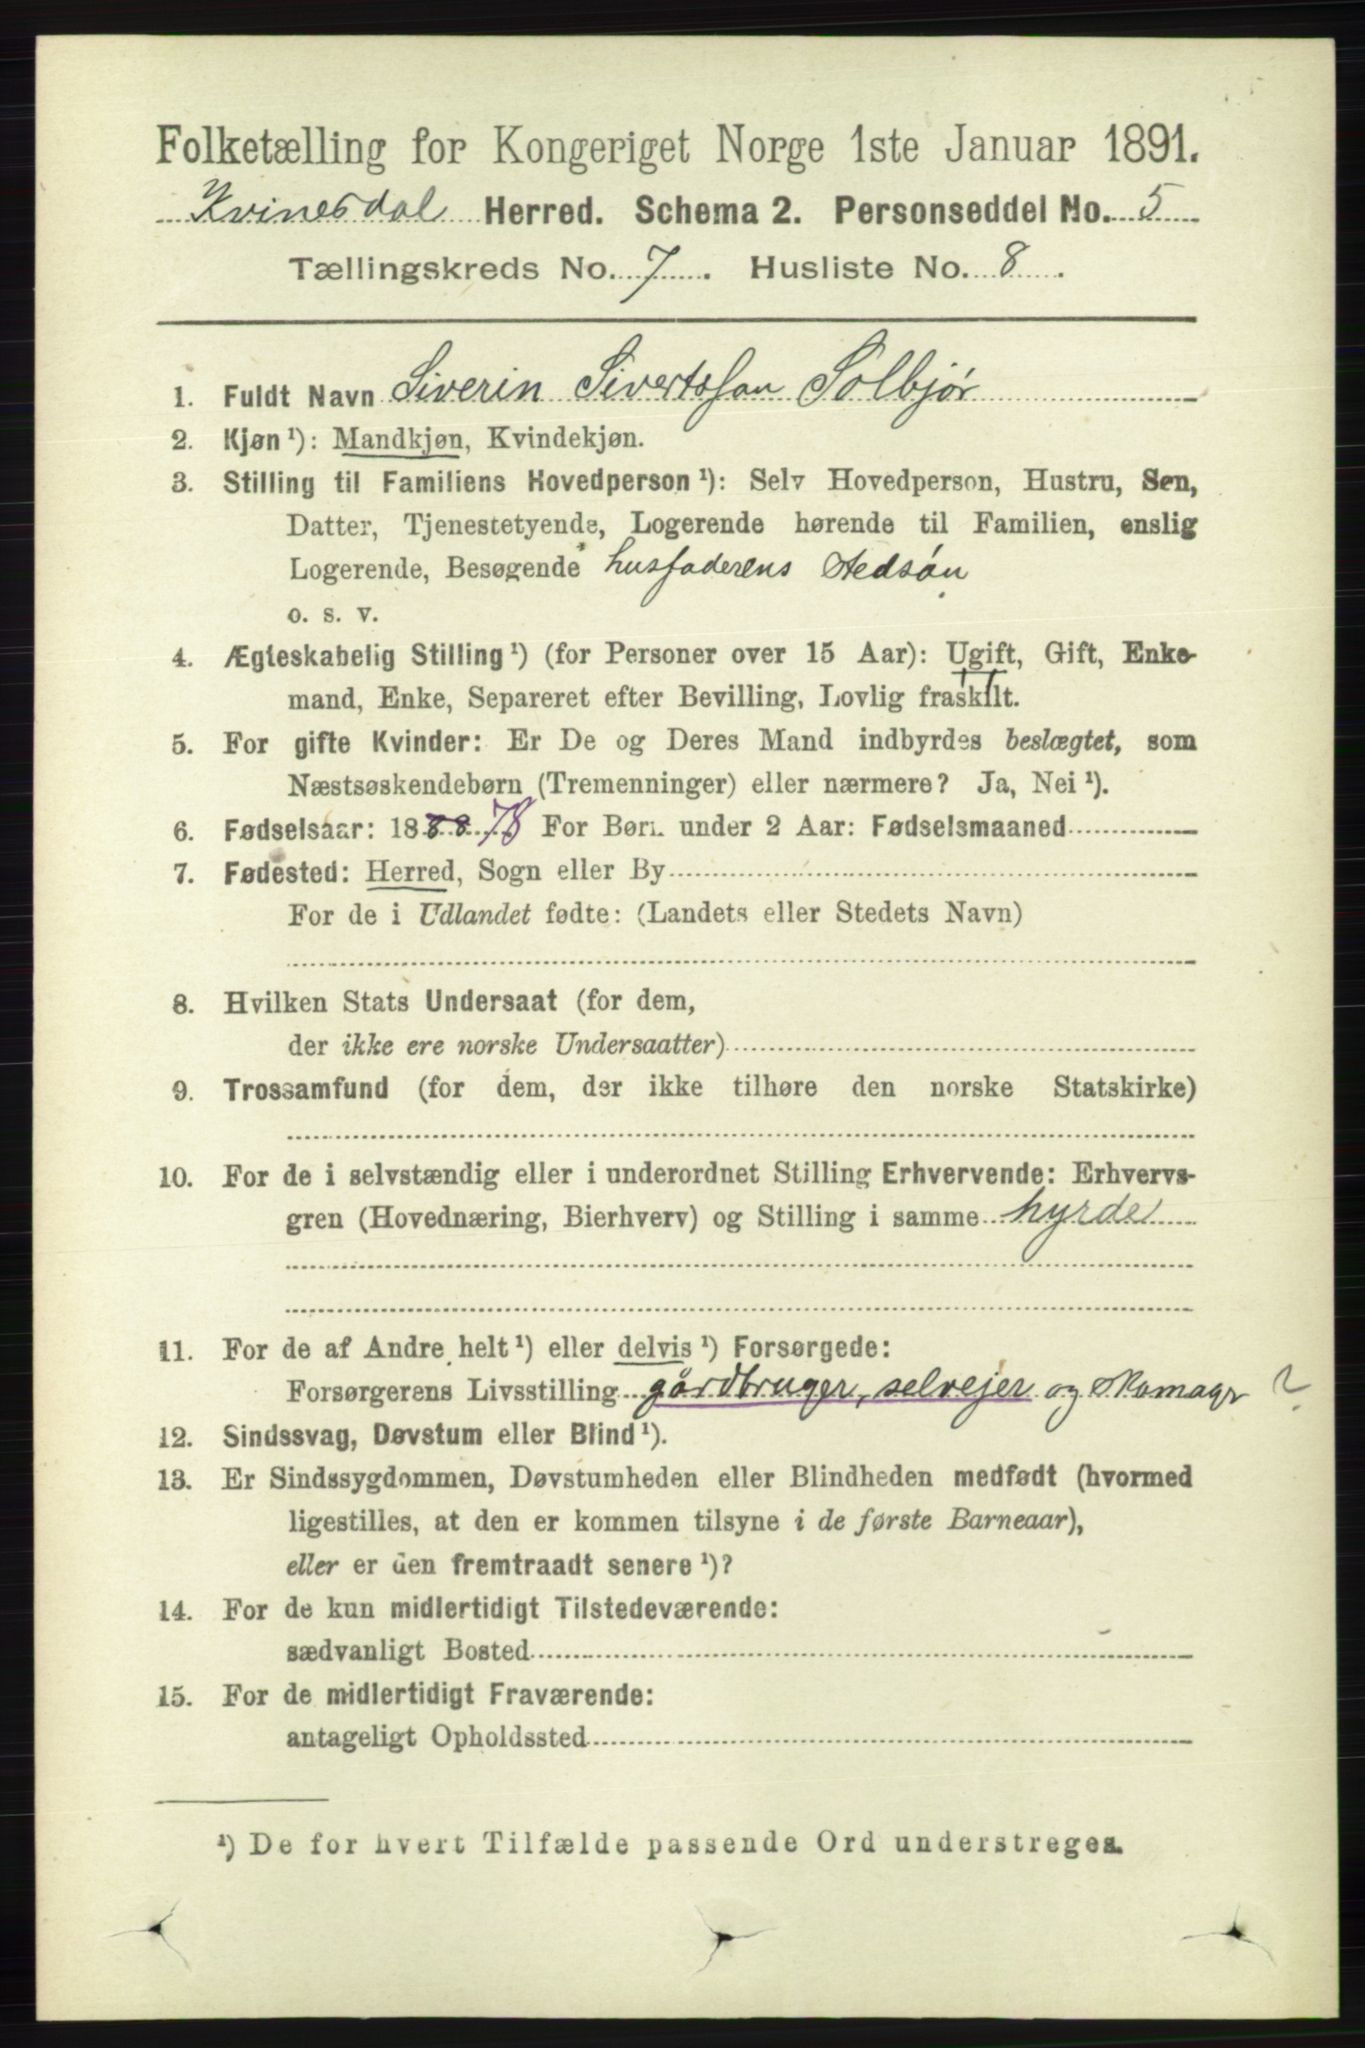 Folketælling for Kongeriget Norge 1ste Januar 1891.
Kvinesdal Herred. Schema 2. Personseddel No. 5
Tællingskreds No. 7. Husliste No. 8.
1. Fuldt Navn Siverin Sivertsson Solbjør
2. Kjøn ¹): Mandkjøn, Kvindekjøn.
3. Stilling til Familiens Hovedperson ¹): Selv Hovedperson, Hustru, Søn,
Datter, Tjenestetyende, Logerende hørende til Familien, enslig
Logerende, Besøgende husfaderens stedsøn
o. s. v.
4. Ægteskabelig Stilling ¹) (for Personer over 15 Aar): Ugift, Gift, Enke-
mand, Enke, Separeret efter Bevilling, Lovlig fraskilt.
5. For gifte Kvinder: Er De og Deres Mand indbyrdes beslægtet, som
Næstsøskendebørn (Tremenninger) eller nærmere? Ja, Nei ¹).
6. Fødselsaar: 1888 78 For Børn under 2 Aar: Fødselsmaaned
7. Fødested: Herred, Sogn eller By
For de i Udlandet fødte: (Landets eller Stedets Navn)
8. Hvilken Stats Undersaat (for dem,
der ikke ere norske Undersaatter)
9. Trossamfund (for dem, der ikke tilhøre den norske Statskirke)
10. For de i selvstændig eller i underordnet Stilling Erhvervende: Erhvervs-
gren (Hovednæring, Bierhverv) og Stilling i samme hyrde
11. For de af Andre helt ¹) eller delvis ¹) Forsørgede:
Forsørgerens Livsstilling gårdbruger, selvejer og skomager ?
12. Sindssvag, Døvstum eller Blind ¹).
13. Er Sindssygdommen, Døvstumheden eller Blindheden medfødt (hvormed
ligestilles, at den er kommen tilsyne i de første Barneaar),
eller er den fremtraadt senere ¹)?
14. For de kun midlertidigt Tilstedeværende:
sædvanligt Bosted
15. For de midlertidigt Fraværende:
antageligt Opholdssted
¹) De for hvert Tilfælde passende Ord understreges.